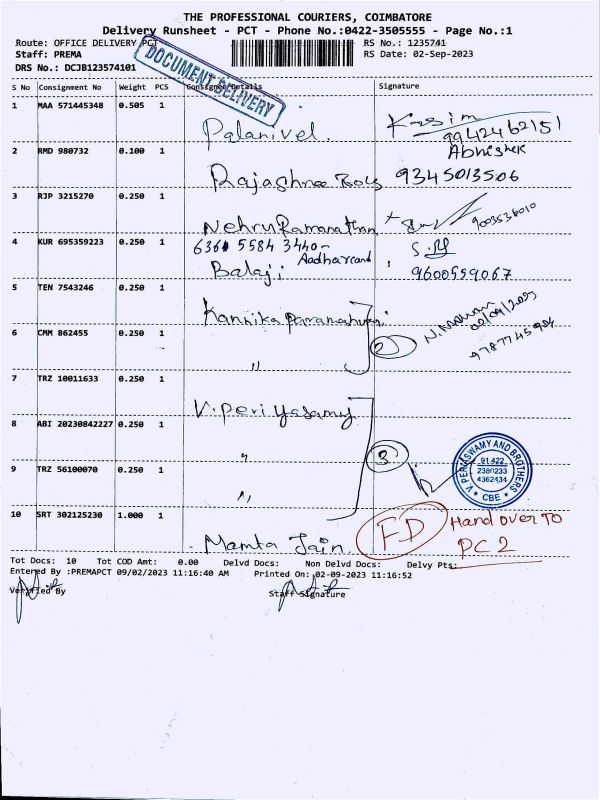 THE PROFESSIONAL COURIERS, COIMBATORE
Delivery Runsheet - PCT - Phone No.:0422-3505555 - Page No.:1
Route: OFFICE DELIVERY PCT
RS No.: 1235741
Staff: PREMA
RS Date: 02-Sep-2023
DRS No.: DCJB123574101
DOCUMENT DELIVERY
S No Consignment No Weight PCS Consignee Details Signature
1 MAA 571445348 0.505 1
Palanivel. Kasim
9942462151
2 RMD 980732 0.100 1
Abhishek
Rajashree 9345013506
3 RJP 3215270 0.250 1
Nehru Ramanathan 9003536010
4 KUR 695359223 0.250 1
6361 5584 3440-
Aadharcard
Balaji 9600559067
5 TEN 7543246 0.250 1
Kannika Parameshwari
02/09/2023
6 CMM 862455 0.250 1
2
9787745904
"
7 TRZ 10011633 0.250 1
V. Periyasamy
8 ABI 20230842227 0.250 1
"
3
9 TRZ 56100070 0.250 1
"
V. PERIYASWAMY AND BROTHERS
91 422
2380233
4362434
CBE
10 SRT 302125230 1.000 1
Mamta Jain.
FD
Hand over TO
PC 2
Tot Docs: 10 Tot COD Amt: 0.00 Delvd Docs: Non Delvd Docs: Delvy Pts:
Entered By :PREMAPCT 09/02/2023 11:16:40 AM Printed On: 02-09-2023 11:16:52
Verified By Staff Signature